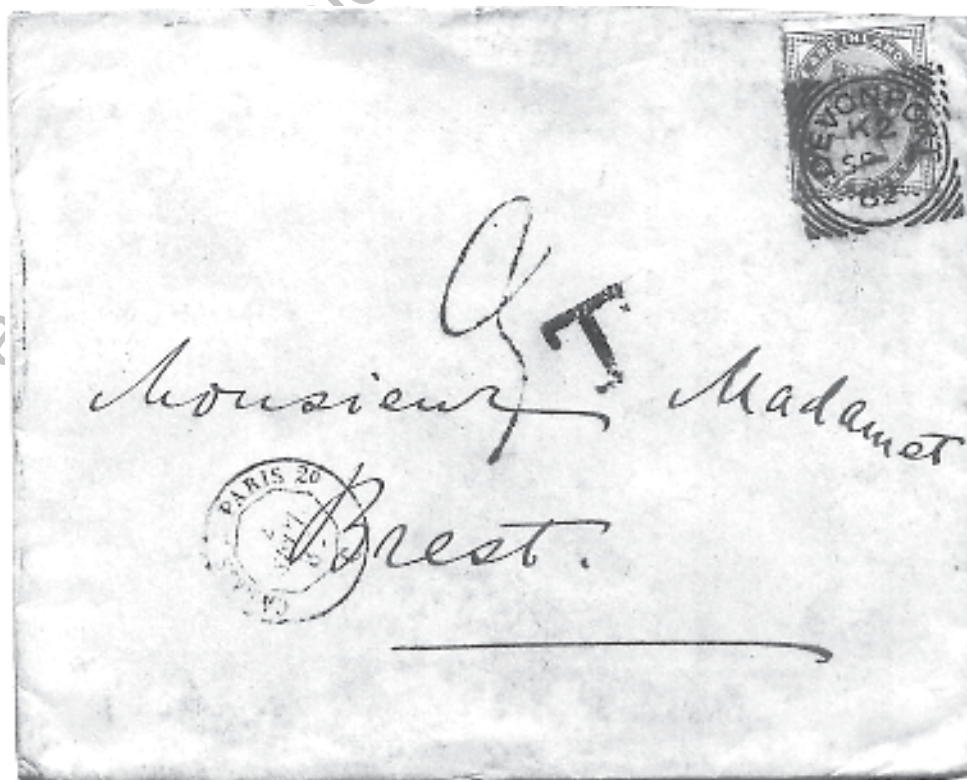 DEVONPORT
K2
SP
82
T
Monsieur Madamet
PARIS 20
Brest.